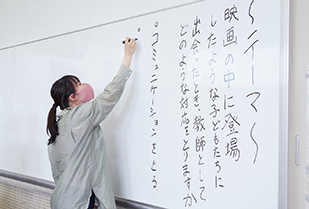 ～テーマ～
映画の中に登場
したような子どもたちに
出会ったとき、教師として
どのような対応をとりますか
◦コミュニケーションをとる
◦